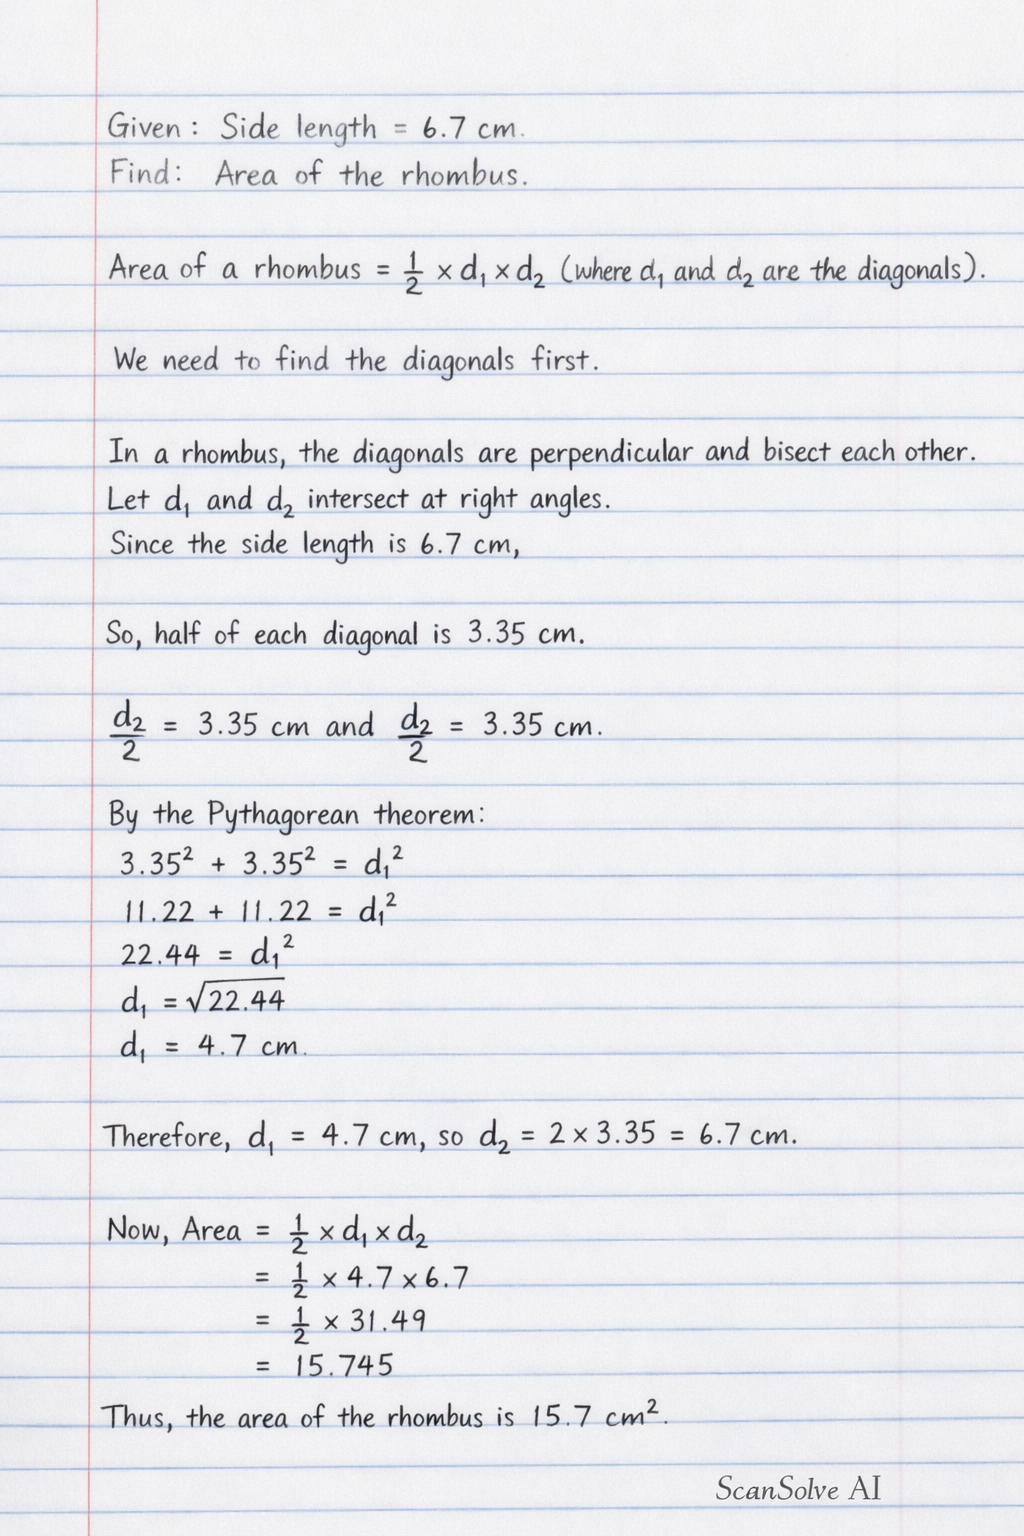 Given: Side length = 6.7 cm.
Find: Area of the rhombus.
Area of a rhombus = 1/2 × d₁ × d₂ (where d₁ and d₂ are the diagonals).
We need to find the diagonals first.
In a rhombus, the diagonals are perpendicular and bisect each other.
Let d₁ and d₂ intersect at right angles.
Since the side length is 6.7 cm,
So, half of each diagonal is 3.35 cm.
d₂/2 = 3.35 cm and d₂/2 = 3.35 cm.
By the Pythagorean theorem:
3.35² + 3.35² = d₁²
11.22 + 11.22 = d₁²
22.44 = d₁²
d₁ = √22.44
d₁ = 4.7 cm.
Therefore, d₁ = 4.7 cm, so d₂ = 2 × 3.35 = 6.7 cm.
Now, Area = 1/2 × d₁ × d₂
= 1/2 × 4.7 × 6.7
= 1/2 × 31.49
= 15.745
Thus, the area of the rhombus is 15.7 cm².
ScanSolve AI